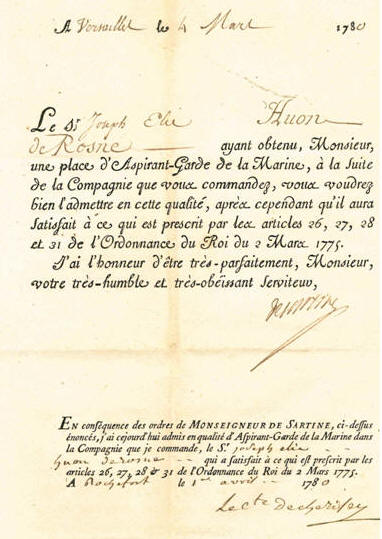 A Versailles le 4 Mars 1780
Le Sr. Joseph Elie Huon
de Rosne ayant obtenu, Monsieur,
une place d'Aspirant-Garde de la Marine, à la suite
de la Compagnie que vous commandez, vous voudrez
bien l'admettre en cette qualité, après cependant qu'il aura
satisfait à ce qui est prescrit par les articles 26, 27, 28
et 31 de l'Ordonnance du Roi du 2 Mars 1775.
J'ai l'honneur d'être très-parfaitement, Monsieur,
votre très-humble et très-obéissant Serviteur,
de Sartine
EN conséquence des ordres de MONSEIGNEUR DE SARTINE, ci-dessus
énoncés, j'ai cejourd'hui admis en qualité d'Aspirant-Garde de la Marine dans
la Compagnie que je commande, le Sr. joseph elie
huon de rosne qui a satisfait à ce qui est prescrit par les
articles 26, 27, 28 & 31 de l'Ordonnance du Roi du 2 Mars 1775.
A Rochefort le 1er avril 1780
Le Cte decherisey